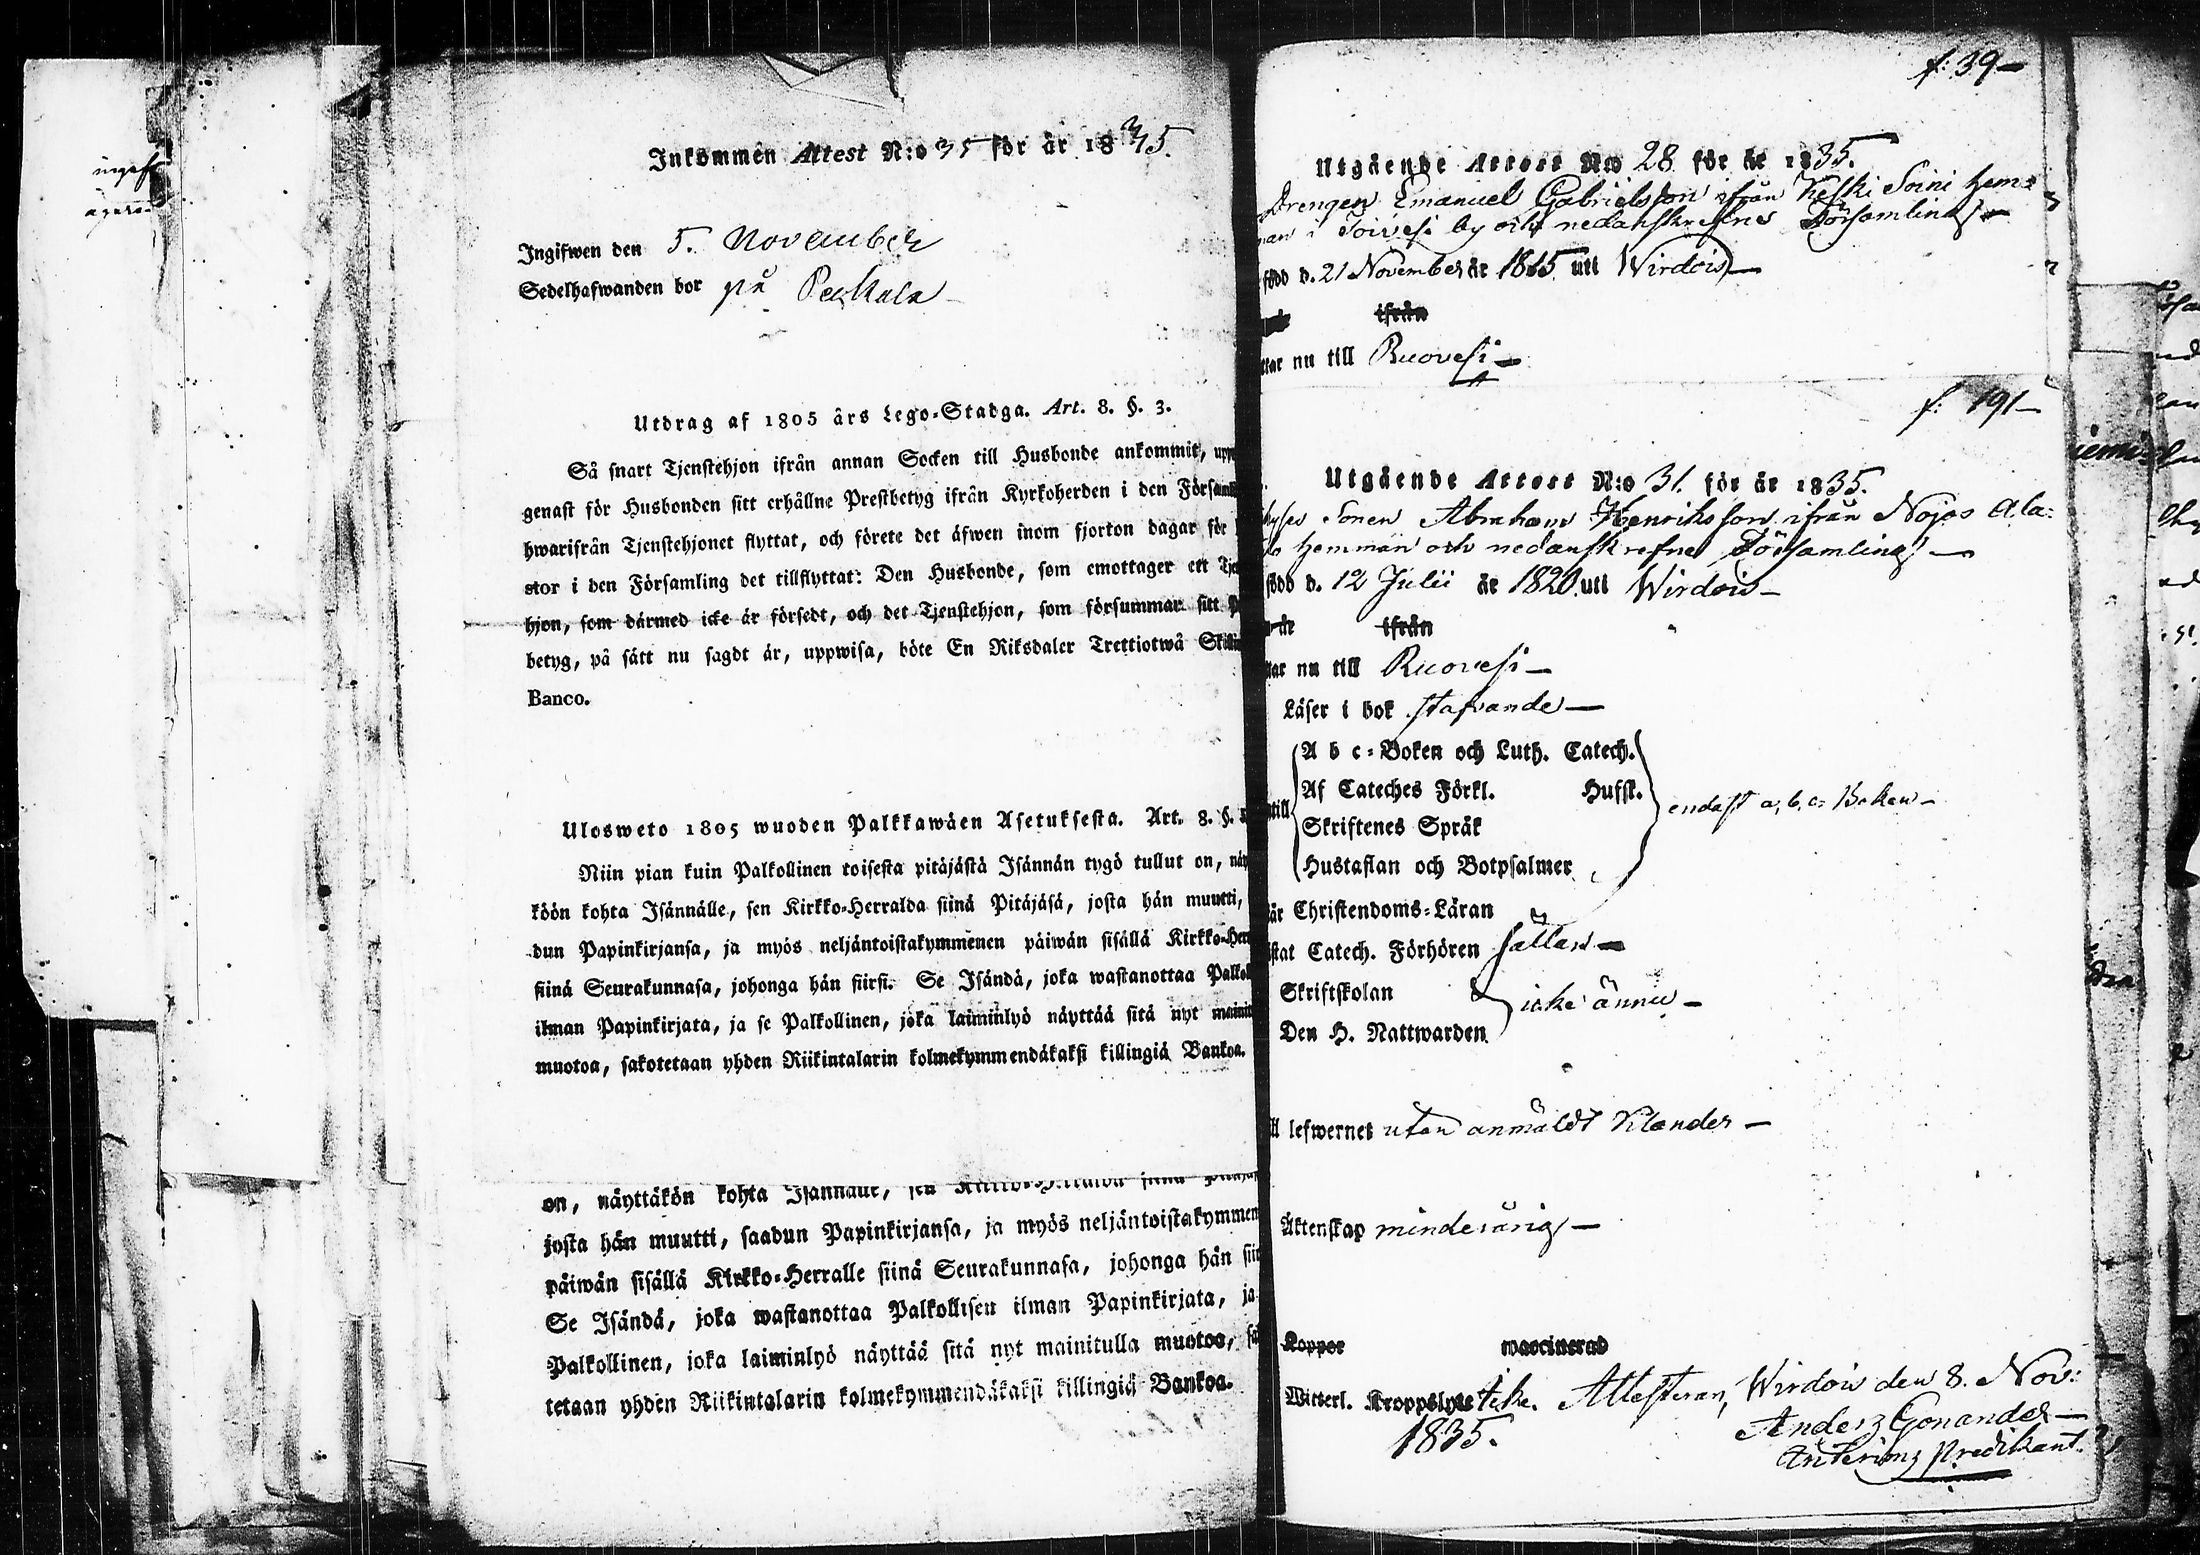 Inkommen Attest N:o 35 för år 1835.
Ingifwen den 5. November
Sedelhafwanden bor på Pekkala
Utdrag af 1805 års Lego-Stadga. Art. 8. §. 3.
Så snart Tjenstehjon ifrån annan Socken till Husbonde ankommit,
genast för Husbonden sitt erhållne Prestbetyg ifrån Kyrkoherden i den
hwarifrån Tjenstehjonet flyttat, och förete det äfwen inom fjorton dagar för
stor i den Församling det tillflyttat: Den Husbonde, som emottager ett
hjon, som därmed icke är försedt, och det Tjenstehjon, som försummar sitt
betyg, på sätt nu sagdt är, uppwisa, böte En Riksdaler Trettiotwå
Banco.
Ulosweto 1805 wuoden Palkkawäen Asetuksesta. Art. 8. §.
Niin pian kuin Palkollinen toisesta pitäjästä Isännän tygö tullut on,
köön kohta Isännälle, sen Kirkko-Herralda siinä Pitäjäsä, josta hän muutti,
dun Papinkirjansa, ja myös neljäntoistakymmenen päiwän sisällä
siinä Seurakunnasa, johonga hän siirsi. Se Isändä, joka wastanottaa
ilman Papinkirjata, ja se Palkollinen, joka laiminlyö näyttää sitä nyt
muotoa, sakotetaan yhden Riikintalarin kolmekymmendäkaksi killingiä Bankoa.
on, näyttäkön kohta Isännälle,
josta hän muutti, saadun Papinkirjansa, ja myös neljäntoistakymmen
päiwän sisällä Kirkko-Herralle siinä Seurakunnasa, johonga hän
Se Isändä, joka wastanottaa Palkollisen ilman Papinkirjata, ja
Palkollinen, joka laiminlyö näyttää sitä nyt mainitulla muotoa,
tetaan yhden Riikintalarin kolmekymmendäkaksi killingiä Bankoa.
f: 39-
Utgående Attest N:o 28 för år 1835.
Drengen Emanuel Gabrielsson ifrån Keski Soini hem=
man i Toivesi by och nedanskrefne Församling
född d. 21 November år 1815 uti Wirdois
ifrån
ttar nu till Ruovesi
f: 191-
Utgående Attest N:o 31. för år 1835.
Sonen Abraham Henriksson ifrån Nojos Ala=
hemman och nedanskrefne Församling
född d. 12 Julii år 1820. uti Wirdois
år ifrån
ttar nu till Ruovesi
Läser i bok stafvande
A b c-Boken och Luth. Catech.
Af Cateches Förkl. Hufst.
Skriftenes Språk
Hustaflan och Botpsalmer
endast a, b, c, Boken
är Christendoms-Läran
istat Catech. Förhören sällan
Skriftskolan
Den H. Nattwarden
icke ännu
ll lefwernet utan anmäldt klander
Äktenskap minderårig
Koppor vaccinerad
Witterl. Kroppslyte icke. Attesteras, Wirdois den 8. Nov:
1835.
Anders Gonander
Interims Predikant.